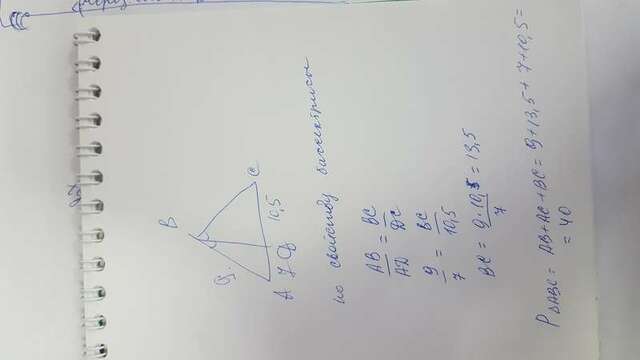 B
9.
A 7 D 10,5 C
по свойству биссектрисы
AB/AD = BC/DC
9/7 = BC/10,5
BC = 9·10,5/7 = 13,5
P△ABC = AB+AC+BC = 9+13,5+7+10,5=
= 40